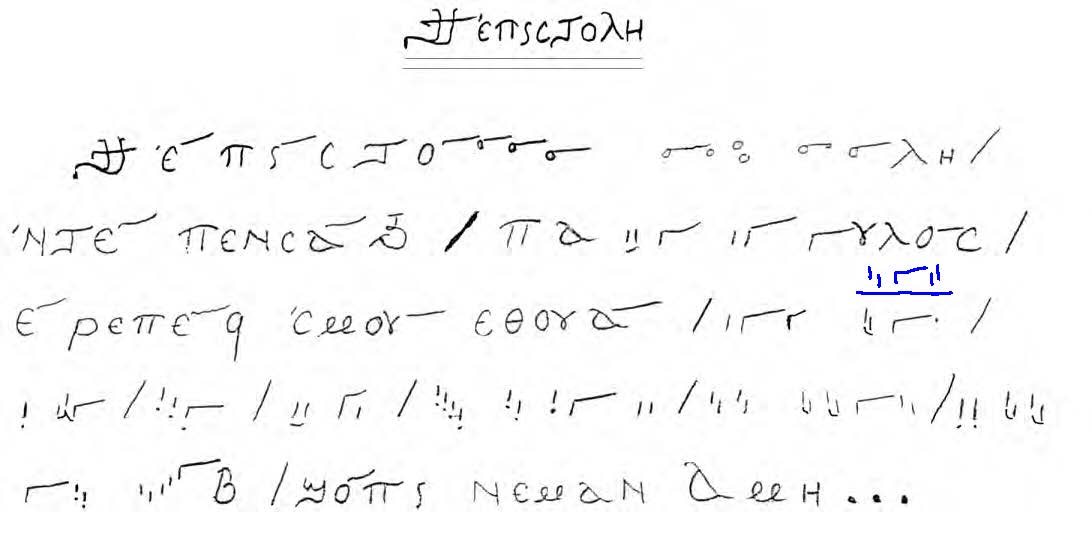 Ϯⲉ̀ⲡⲓⲥⲧⲟⲗⲏ
Ϯ ⲉ̀ ⲡ ⲓ ⲥ ⲧ ⲟ ⲗ ⲏ /
ⲛ̀ⲧⲉ ⲡⲉⲛⲥⲁϧ / ⲡ ⲁ ⲩⲗⲟⲥ /
ⲉ ⲣⲉⲡⲉ ϥ ⲥ̀ⲙⲟⲩ ⲉⲑⲟⲩⲁ / /
/ / / / /
ⲃ / ϣⲟⲡⲓ ⲛⲉⲙⲁⲛ ⲁⲙⲏ...